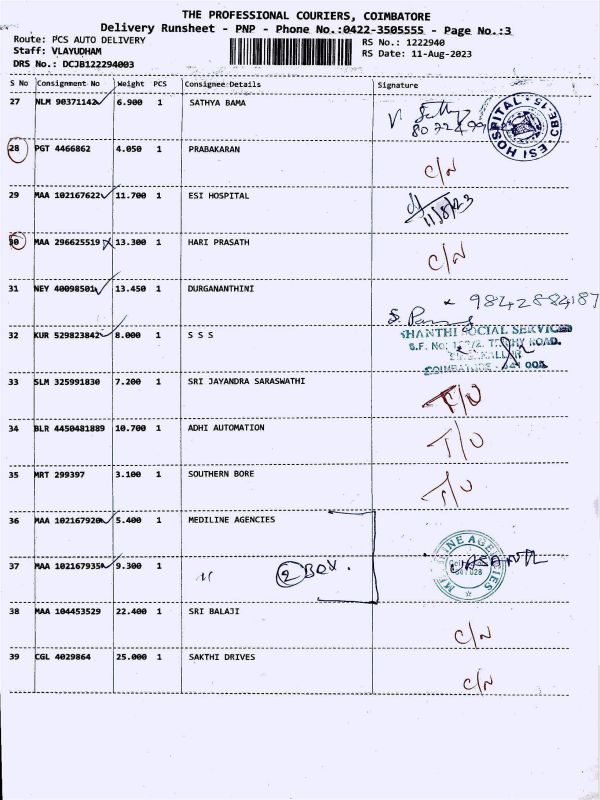 THE PROFESSIONAL COURIERS, COIMBATORE
Delivery Runsheet - PNP - Phone No.:0422-3505555 - Page No.:3
Route: PCS AUTO DELIVERY
RS No.: 1222940
Staff: VLAYUDHAM
RS Date: 11-Aug-2023
DRS No.: DCJB122294003
S No Consignment No Weight PCS Consignee Details Signature
27 NLM 90371142 6.900 1 SATHYA BAMA
ESI HOSPITAL CBE-15
28 PGT 4466862 4.050 1 PRABAKARAN C/N
29 MAA 102167622 11.700 1 ESI HOSPITAL 11/8/23
30 MAA 296625519 13.300 1 HARI PRASATH C/N
31 NEY 40098501 13.450 1 DURGANANTHINI
9842884187
32 KUR 529823842 8.000 1 S S S
SHANTHI SOCIAL SERVICES
S.F. No: ROAD,
COIMBATORE - 641 005
33 SLM 325991830 7.200 1 SRI JAYANDRA SARASWATHI T/O
34 BLR 4450481889 10.700 1 ADHI AUTOMATION T/O
35 MRT 299397 3.100 1 SOUTHERN BORE T/O
36 MAA 102167920 5.400 1 MEDILINE AGENCIES
MEDILINE AGENCIES
37 MAA 102167935 9.300 1 " 2 BOX.
38 MAA 104453529 22.400 1 SRI BALAJI C/N
39 CGL 4029864 25.000 1 SAKTHI DRIVES C/N